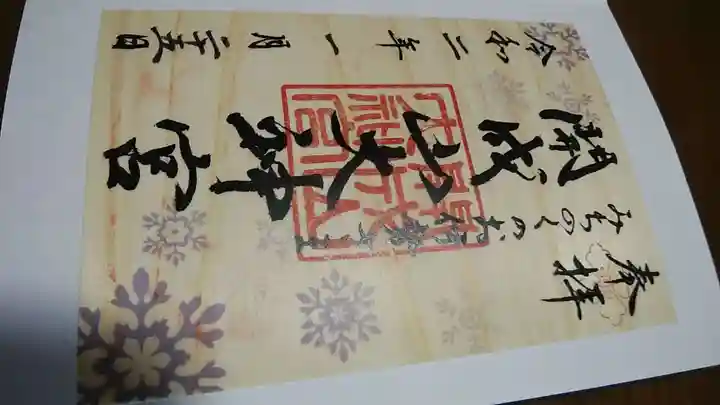 奉拝
みちのくのお伊勢さま
開成山大神宮
開成山大神宮
令和二年一月二十五日